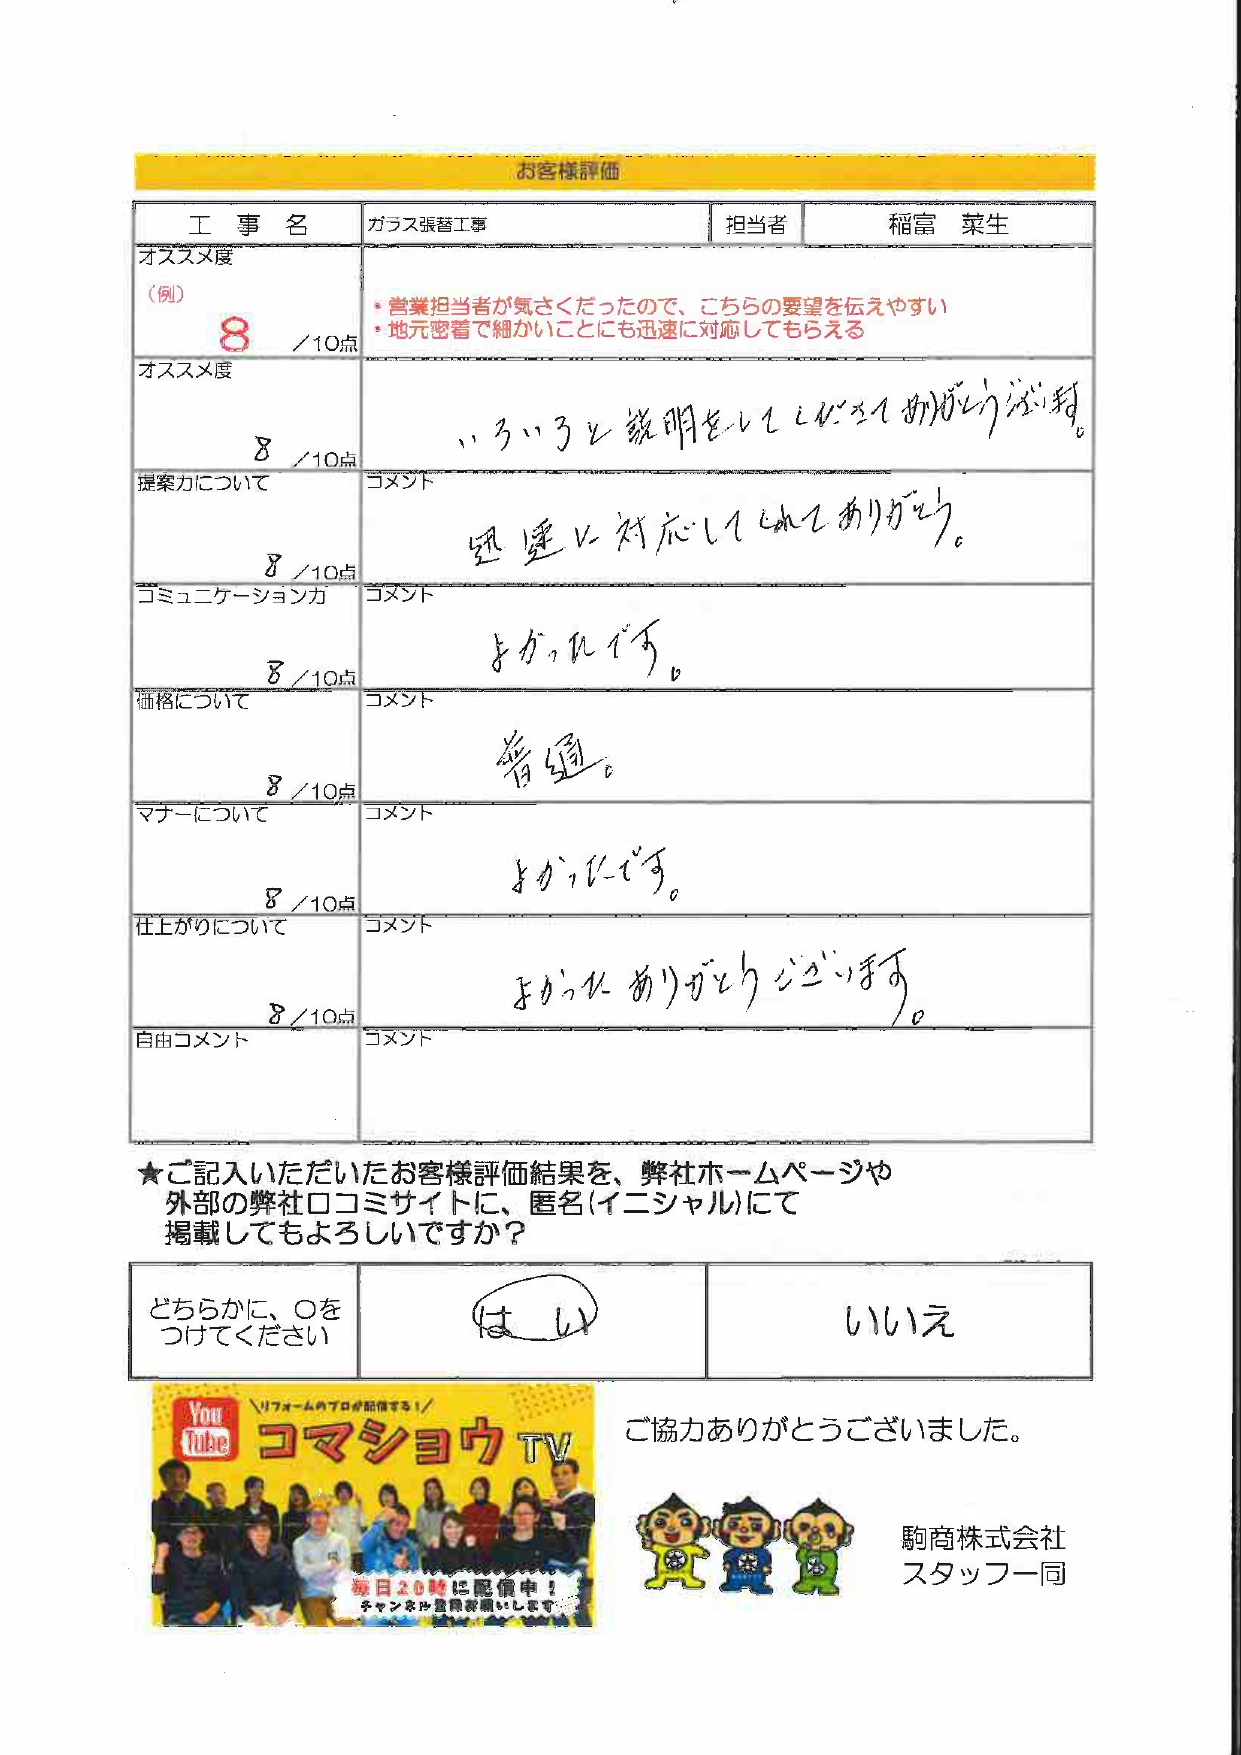 お客様評価
工 事 名 ガラス張替工事 担当者 稲富 菜生
オススメ度
(例)
8 /10点
・営業担当者が気さくだったので、こちらの要望を伝えやすい
・地元密着で細かいことにも迅速に対応してもらえる
オススメ度
8 /10点
いろいろと説明をしてくださてありがとうございます。
提案力について
8 /10点
コメント
迅速に対応してくれてありがとう。
コミュニケーション力
8 /10点
コメント
よかったです。
価格について
8 /10点
コメント
普通。
マナーについて
8 /10点
コメント
よかったです。
仕上がりについて
8 /10点
コメント
よかった ありがとうございます。
自由コメント
コメント
★ご記入いただいたお客様評価結果を、弊社ホームページや
外部の弊社口コミサイトに、匿名(イニシャル)にて
掲載してもよろしいですか?
どちらかに、〇を
つけてください
は い
いいえ
You
Tube
\リフォームのプロが配信する!/
コマショウTV
毎日20時に配信中!
チャンネル登録お願いします
ご協力ありがとうございました。
駒商株式会社
スタッフ一同